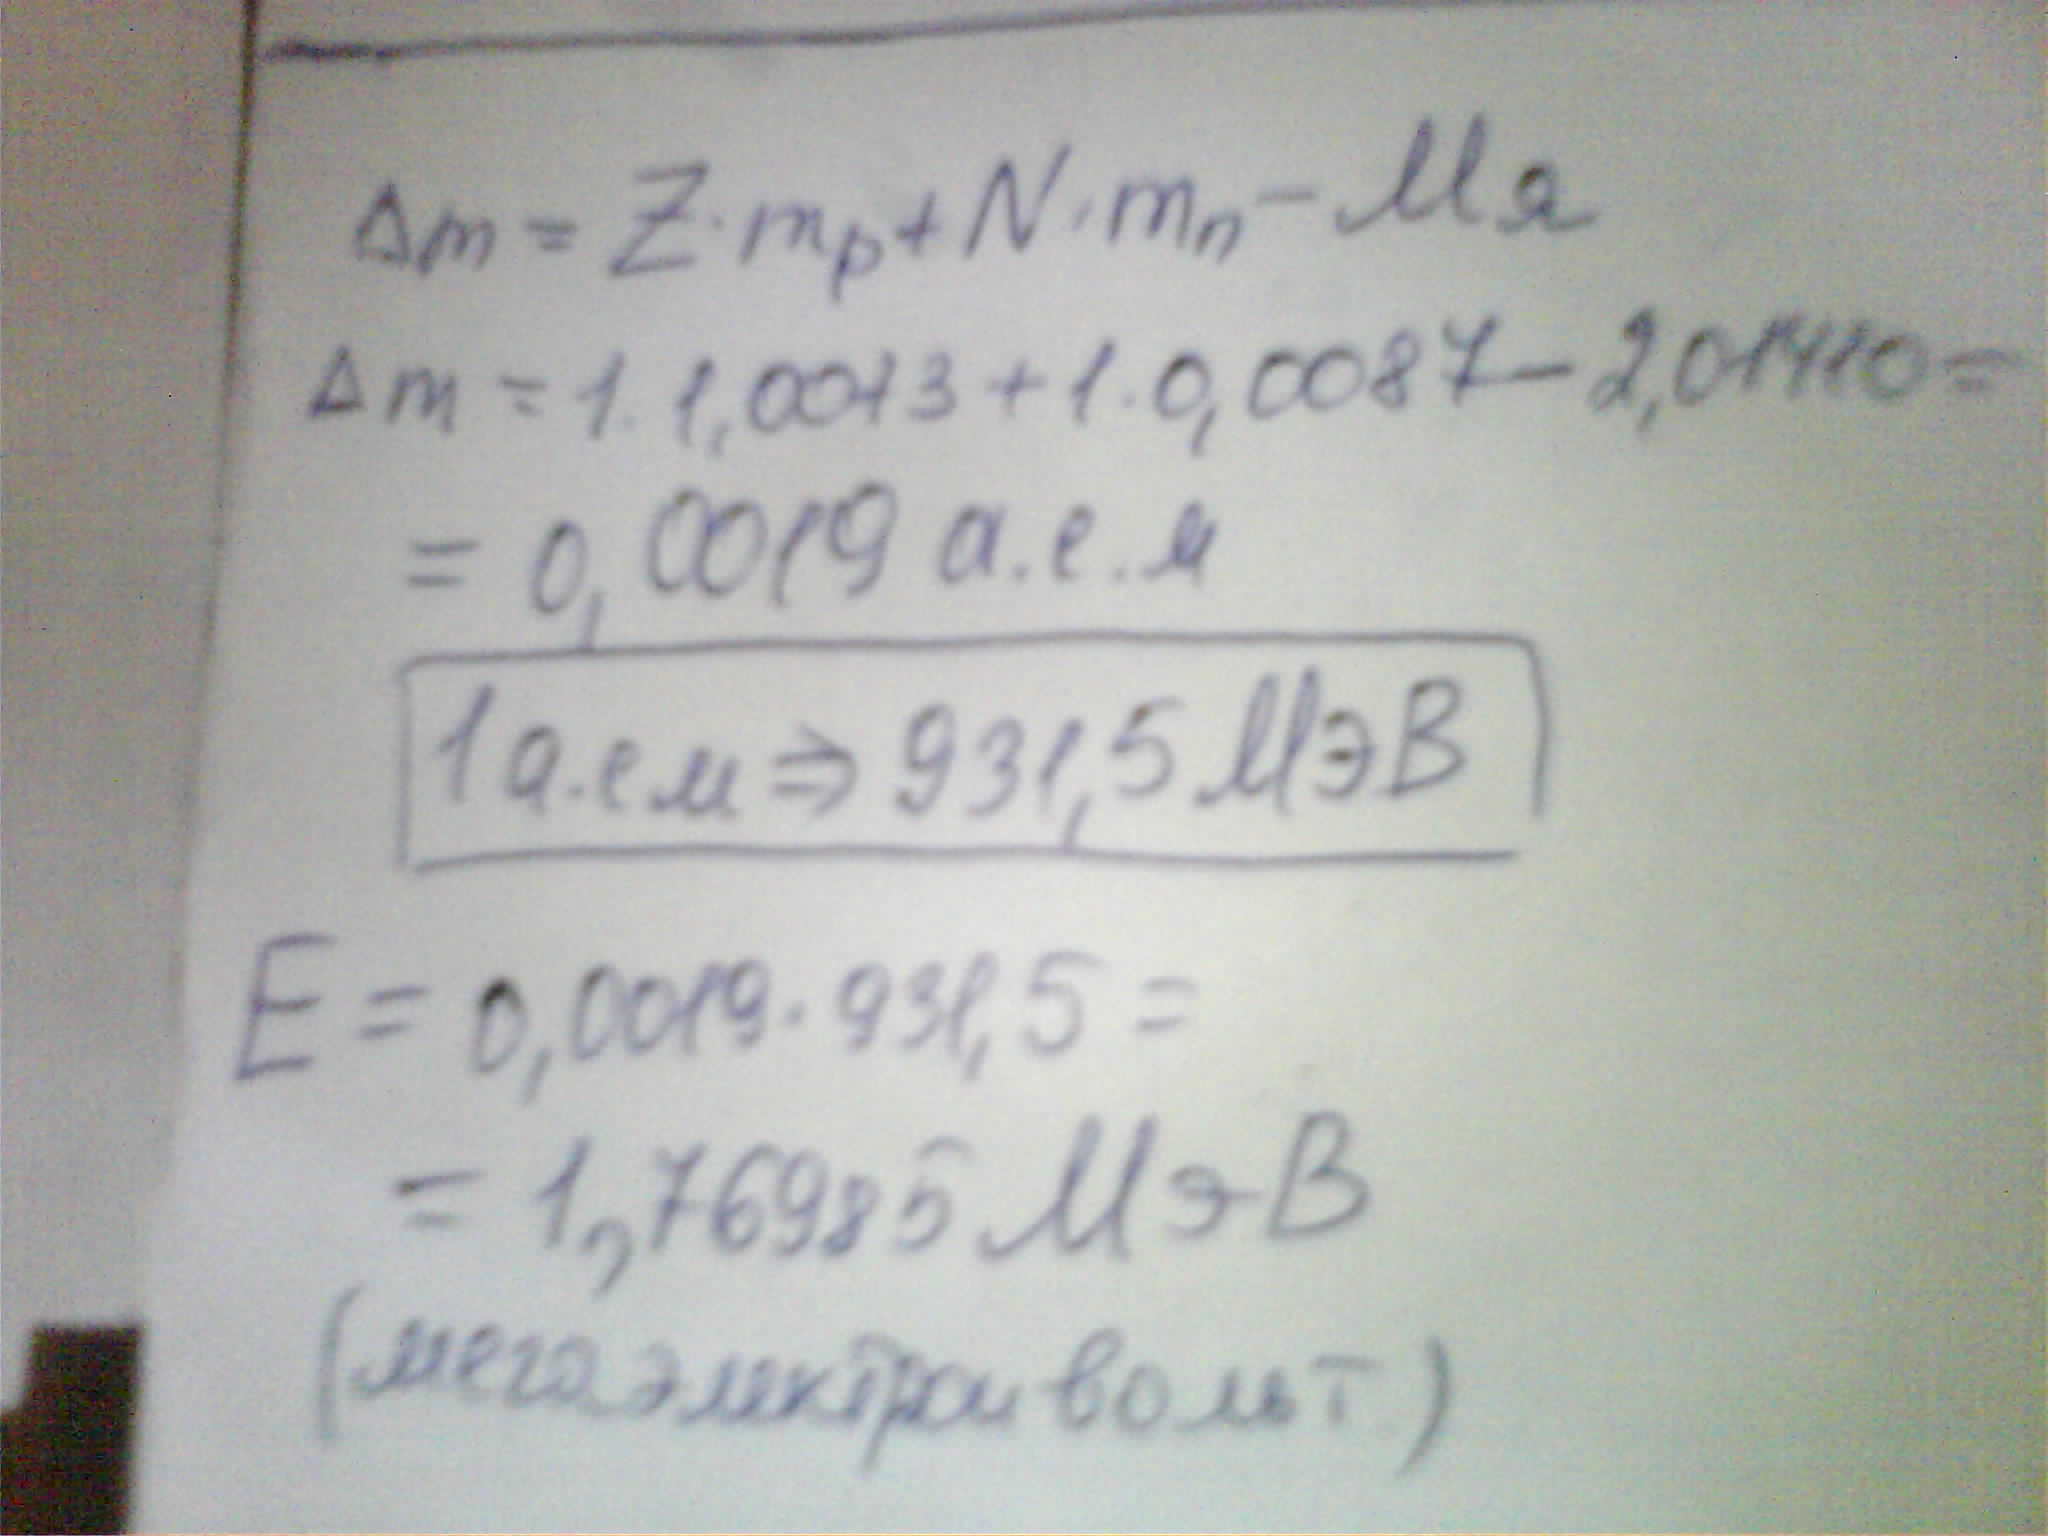 Δm = Z·mp + N·mn − Mя
Δm = 1·1,0013 + 1·0,0087 − 2,01410 =
= 0,0019 а.е.м
1 а.е м ⇒ 931,5 МэВ
E = 0,0019·931,5 =
= 1,76985 МэВ
(мегаэлектрон вольт)